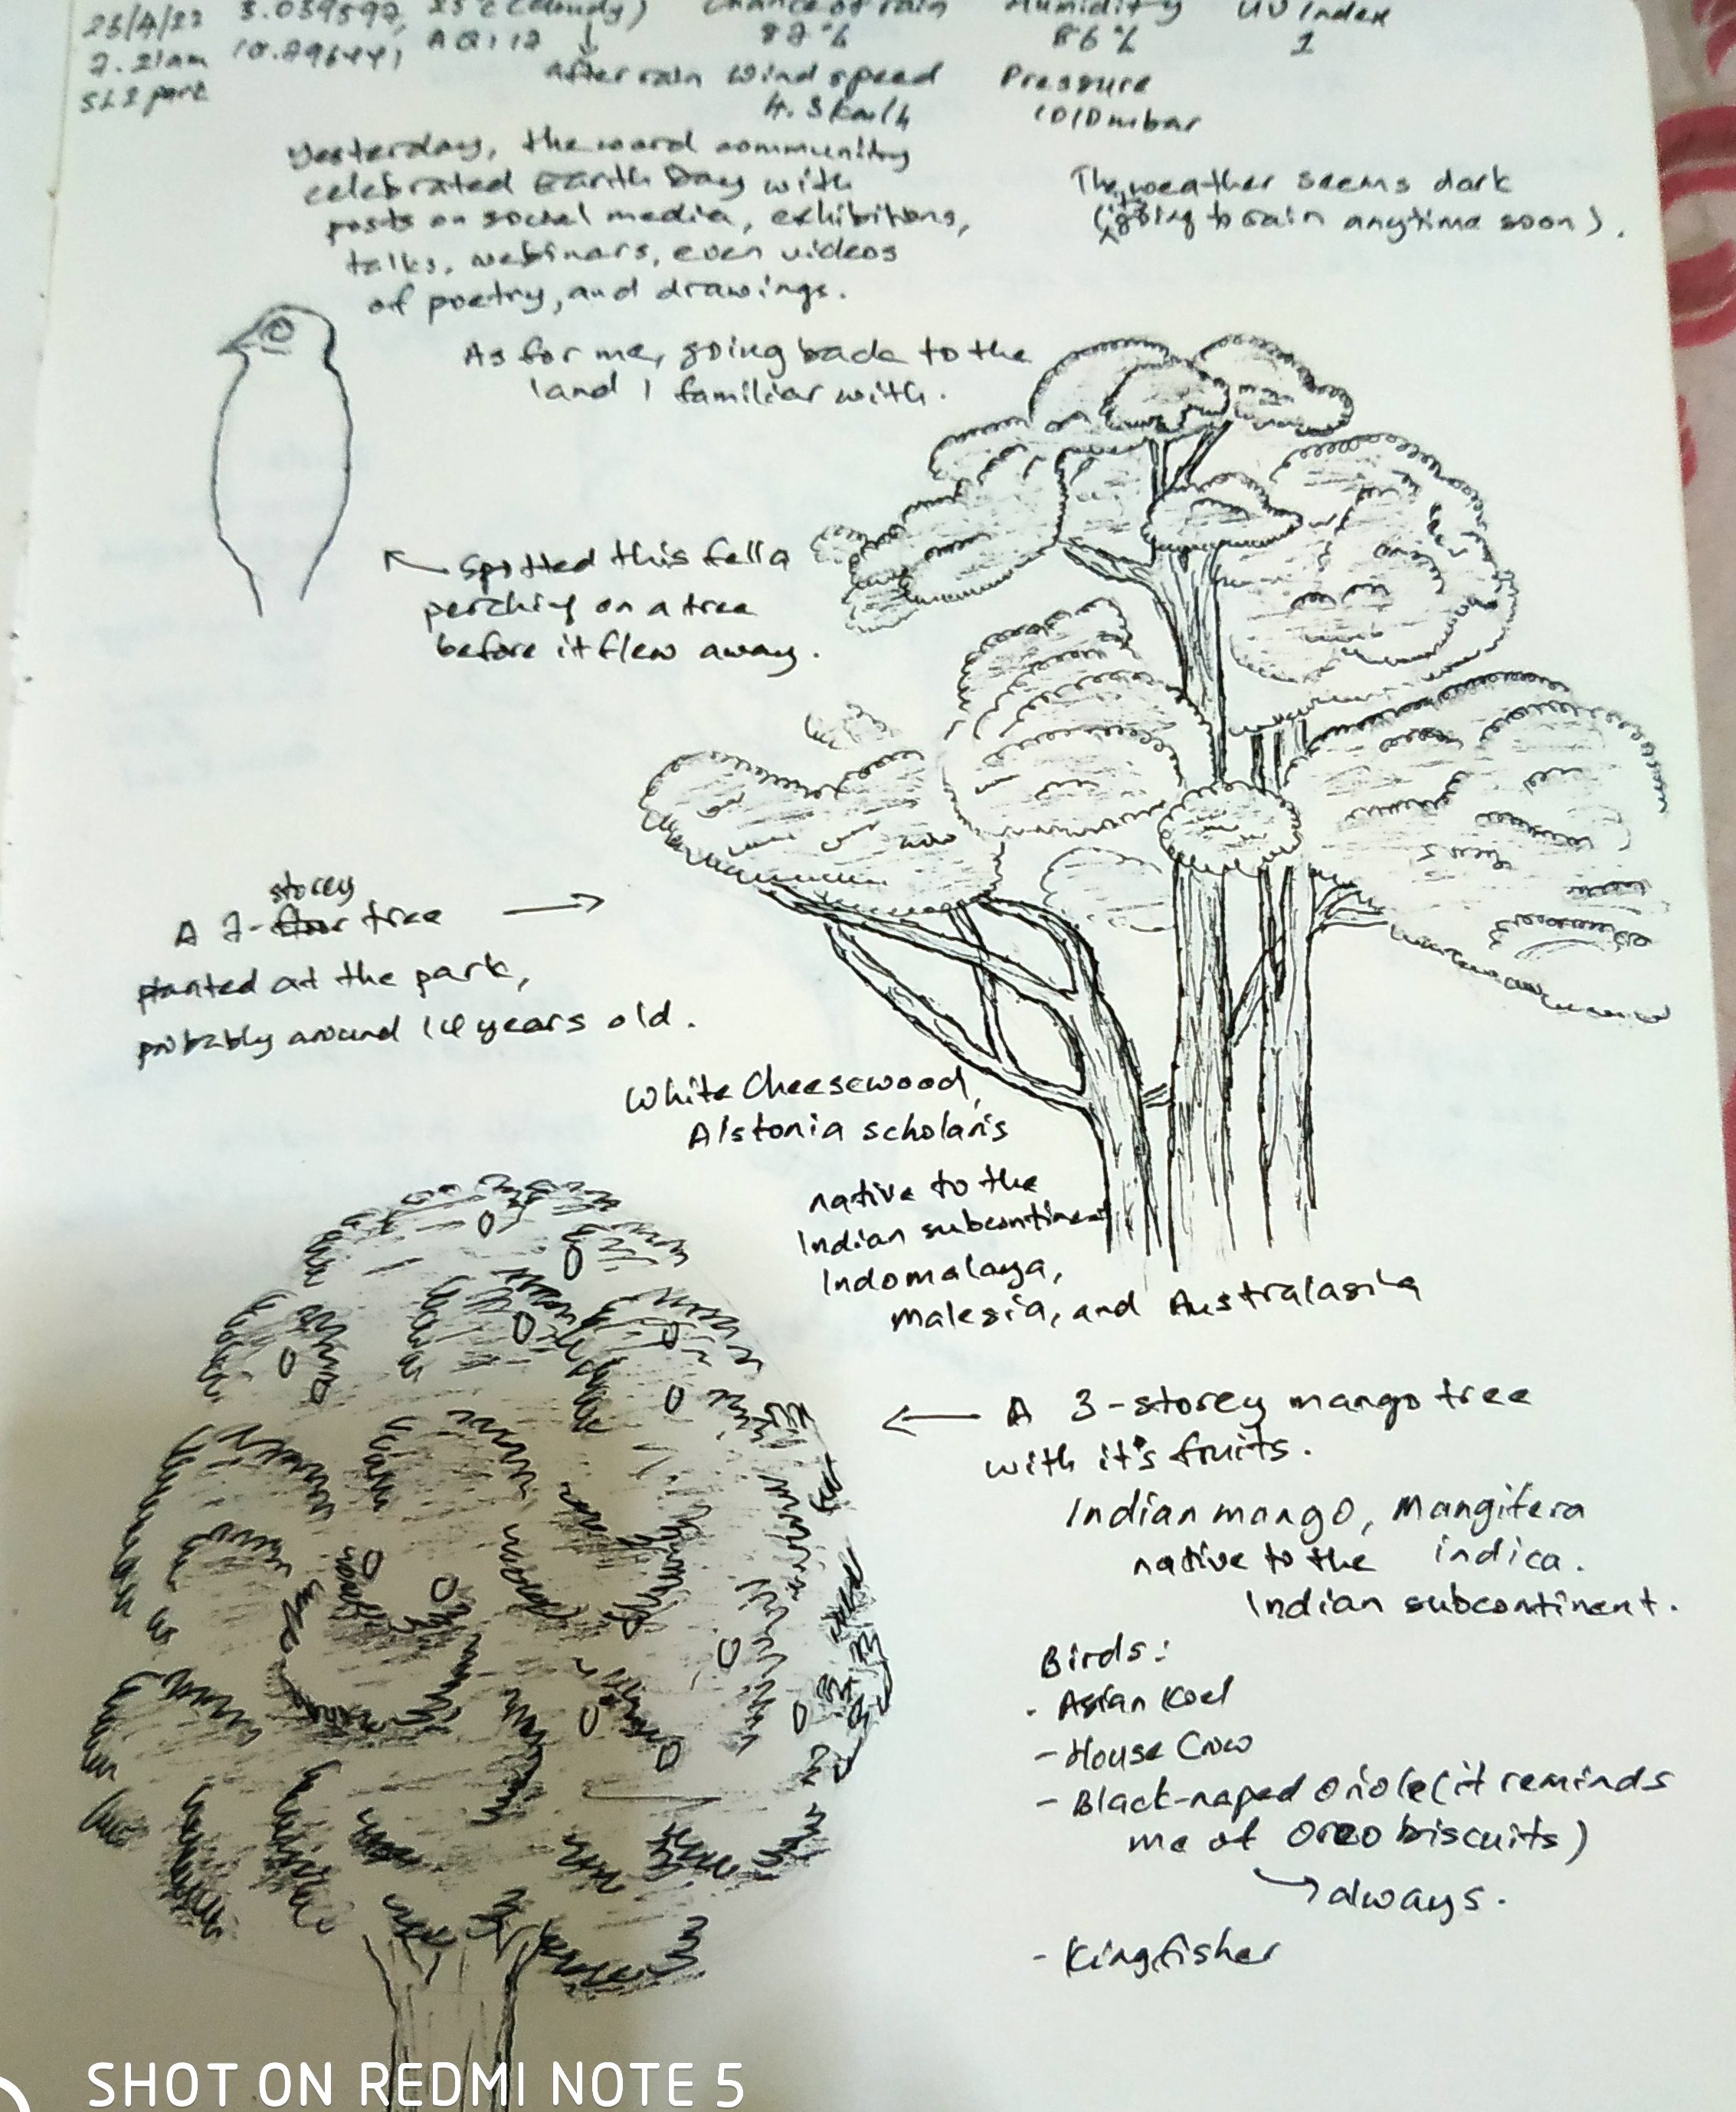 7.21am
Chance of rain
Humidity
86%
UV Index
1
After rain
Wind speed
4.3km/h
Pressure
1010mbar
Yesterday, the ward community
celebrated Earth Day with
posts on social media, exhibitions,
talks, webinars, even videos
of poetry, and drawings.
The weather seems dark
(it's going to rain anytime soon).
As for me, going back to the
land I familiar with.
Spotted this fella
perching on a tree
before it flew away.
storey
tree
planted at the park,
probably around 14 years old.
White Cheesewood,
Alstonia scholaris
native to the
Indian subcontinent
Indomalaya,
malesia, and Australasia
A 3-storey mango tree
with it's fruits.
Indian mango, Mangifera
native to the indica.
Indian subcontinent.
Birds:
- Asian Koel
- House Crow
- Black-naped Oriole (it reminds
me of Oreo biscuits)
always.
- Kingfisher
SHOT ON REDMI NOTE 5